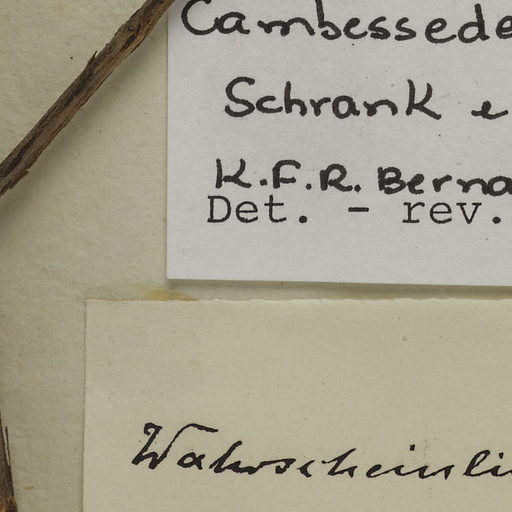 Cambessede
Schrank e
K.F.R. Berna
Det. - rev.
Wahrscheinli